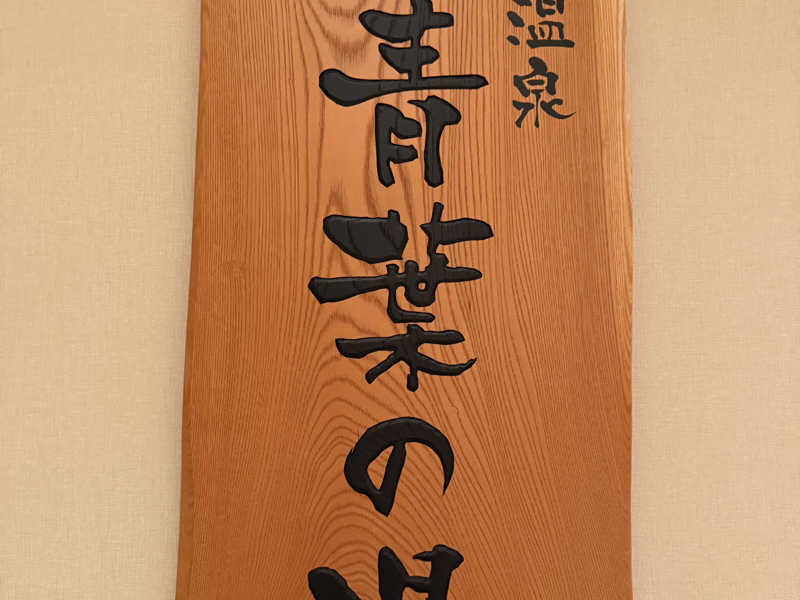 温泉
青葉の湯